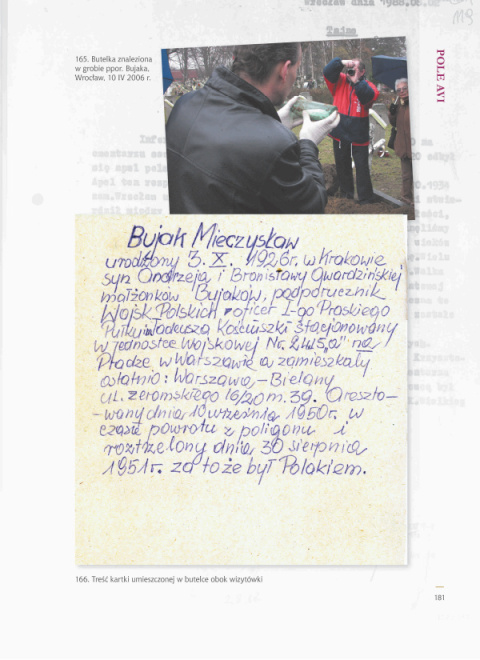 Wrocław dnia 1988.
Tajne
119
165. Butelka znaleziona
w grobie ppor. Bujaka,
Wrocław, 10 IV 2006 r.
POLE AVI
Bujak Mieczysław
urodzony 3. X. 1926r. w Krakowie
syn Ondrzeja i Bronisławy Gwardzińskiej
małżonków Bujaków, podporucznik
Wojsk Polskich oficer I-go Praskiego
Pułku Tadeusza Kościuszki stacjonowany
w jednostce Wojskowej Nr. "a" na
Pradze w Warszawie a zamieszkały
ostatnio: Warszawa - Bielany
ul. Żeromskiego 16/20 m. 39. Areszto-
-wany dnia 10 września 1950r. w
czasie powrotu z poligonu i
rozstrzelony dnia 30 sierpnia
1951r. za to że był Polakiem.
166. Treść kartki umieszczonej w butelce obok wizytówki
181